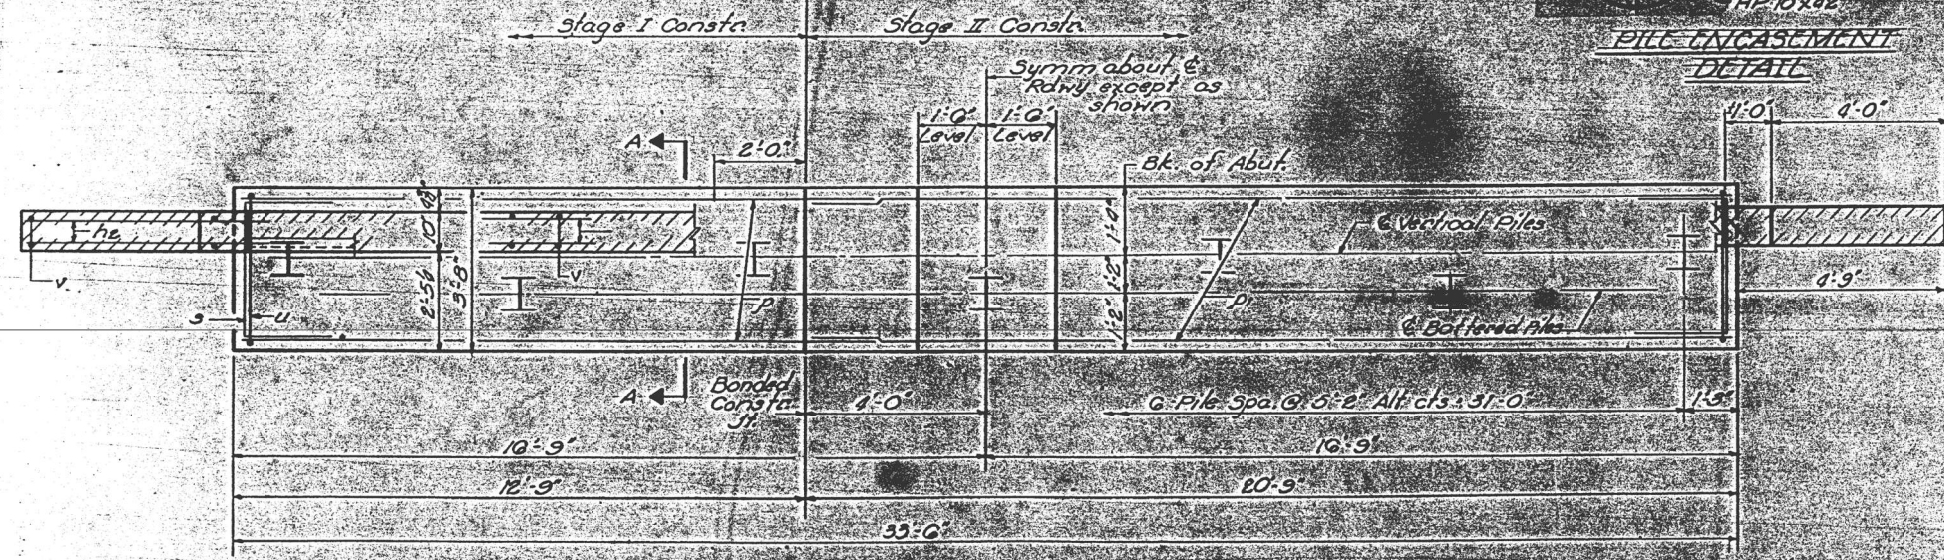 HP 10x42
PILE ENCASEMENT
DETAIL
Stage I Constr.
Stage II Constr.
Symm about ℄
Rdwy except as
shown
1'-6"
1'-6"
Level
Level
1'-0"
4'-0"
A
2'-0"
Bk. of Abut.
3'-8"
1'-0"
1'-2"
1'-2"
℄ Vertical Piles
℄ Battered Piles
v
v
s
u
p
p
4'-9"
A
Bonded
Constr.
Jt.
4'-0"
6-Pile Spa. @ 5'-2" Alt. cts = 31'-0"
1'-3"
16'-9"
16'-9"
12'-9"
20'-9"
33'-6"